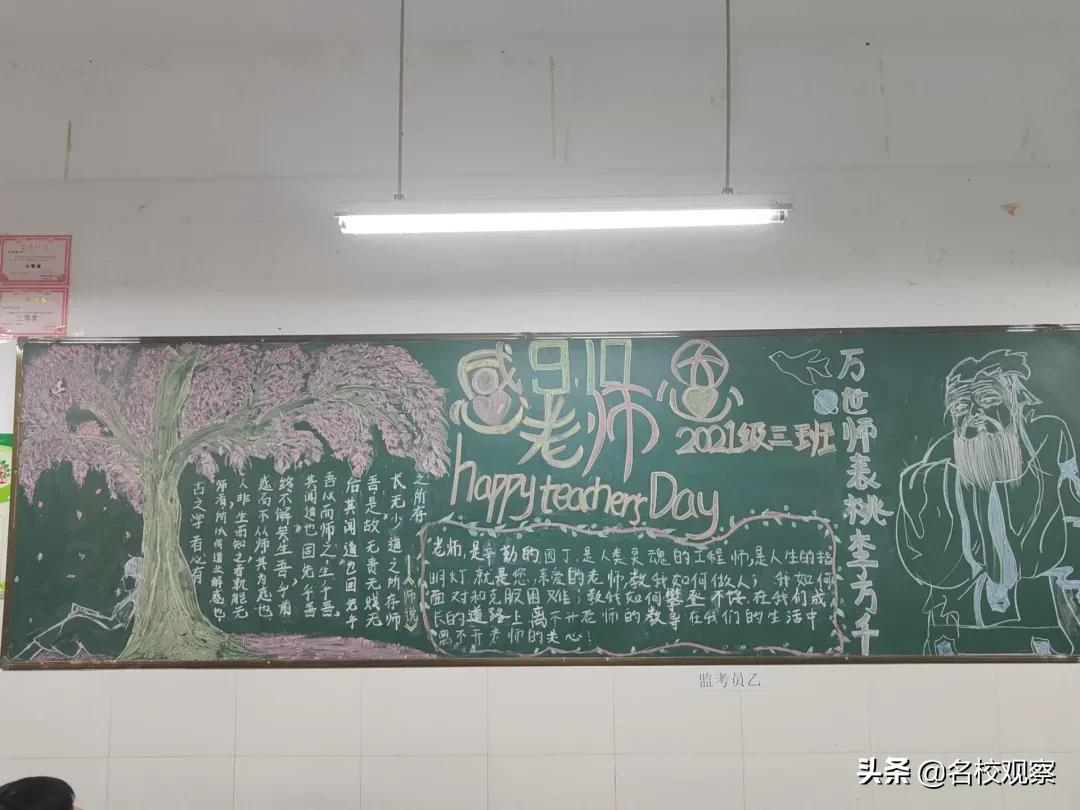 感 9.10 恩
老师
2021级三班
happy teachers Day
古之学者必有
师者所以传道业解惑也
人非生而知之者孰能无
惑而不从师其为惑也
终不解矣生吾乎前
其闻道也固先乎吾
吾从而师之生乎吾
后其闻道也固先乎
吾是故无贵无贱无
长无少道之所存师
之所存
——《师说》
老师,是辛勤的园丁,是人类灵魂的工程师,是人生的指
明灯,就是您,亲爱的老师,教我如何做人; 我如何
面对和克服困难;教我如何攀登不懈.在我们成
长的道路上离不开老师的教导在我们的生活中
离不开老师的关心!
万世师表桃李万千
三等奖
监考员乙
头条 @名校观察